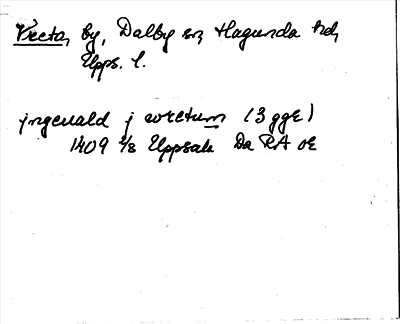 Vreta, by, Dalby sn, Hagunda hd,
Upps. l.
jngeuald j wretum (3 ggr)
1409 1/8 Uppsala Da RA OE